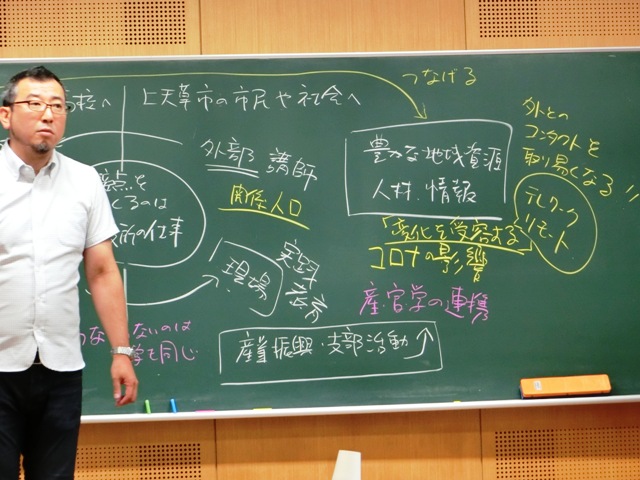 校へ
上天草市の市民や社会へ
つなげる
外部 講師
関係人口
点を
くるのは
所の仕事
現場
実践
豊かな地域資源
人材、情報
「変化を受容する」
コロナの影響
産・官学の連携
外との
コンタクトを
取り易くなる!!
テレワーク
リモート
ないのは
も同じ
産業振興・支部活動